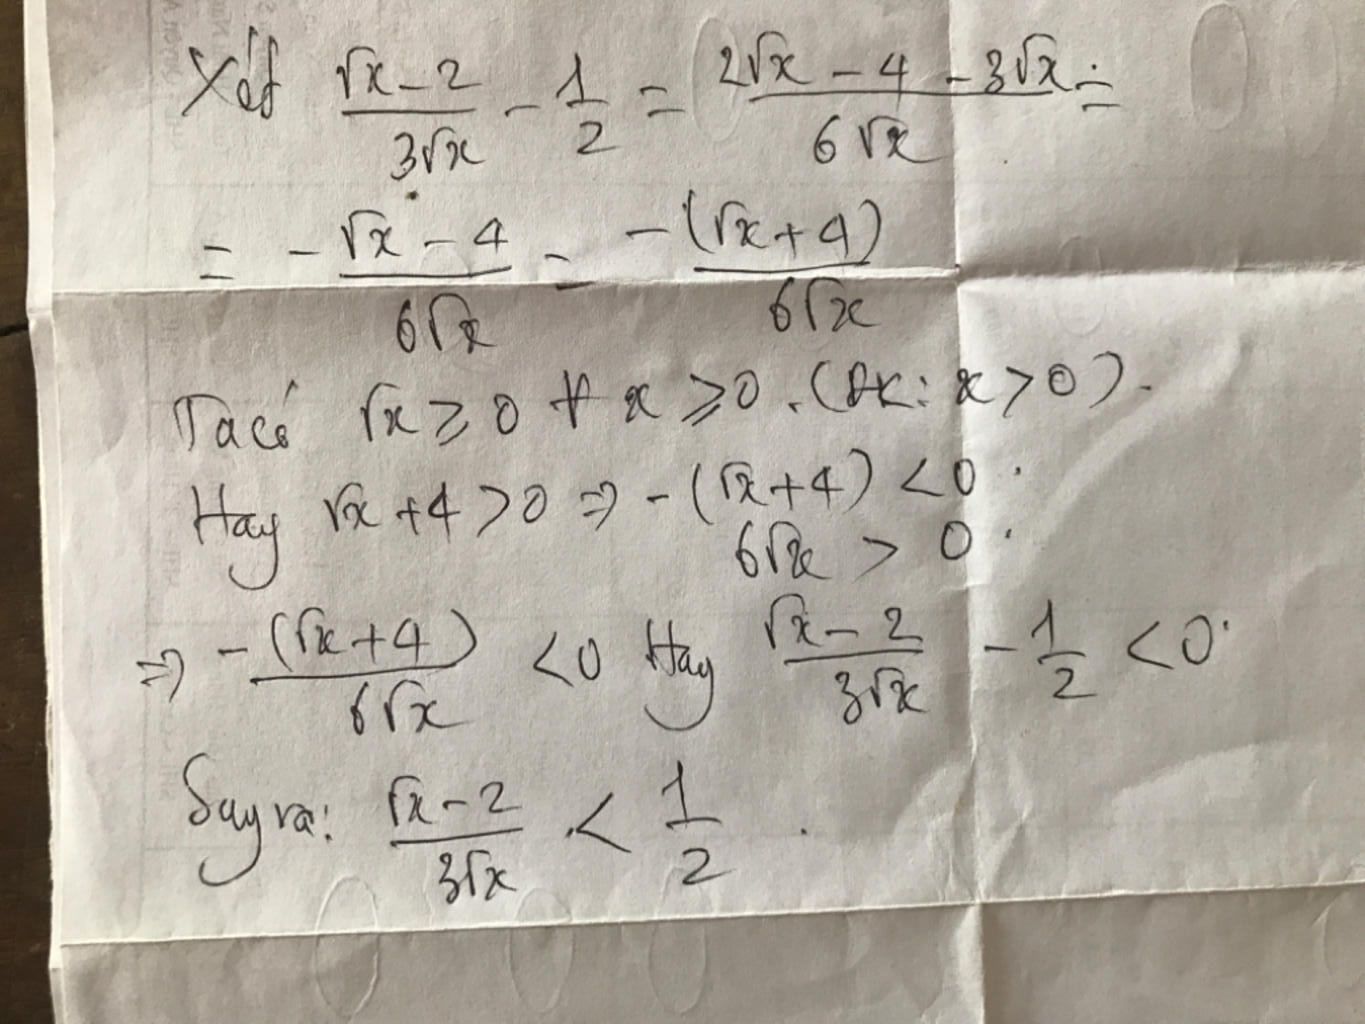 Xét (√x - 2)/(3√x) - 1/2 = (2√x - 4 - 3√x)/(6√x) =
= (-√x - 4)/(6√x) = -(√x + 4)/(6√x)
Ta có √x ≥ 0 ∀ x ≥ 0. (ĐK: x > 0).
Hay √x + 4 > 0 ⇒ -(√x + 4) < 0.
6√x > 0.
⇒ -(√x + 4)/(6√x) < 0 Hay (√x - 2)/(3√x) - 1/2 < 0.
Suy ra: (√x - 2)/(3√x) < 1/2.